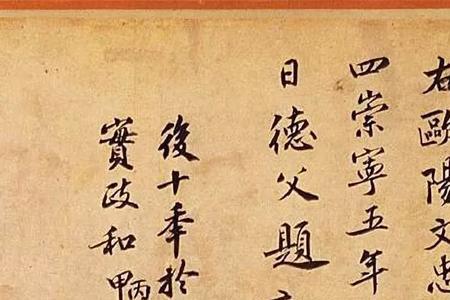 右歐陽文忠
四崇寧五年
日德父題
後十年於
實政和甲
丙